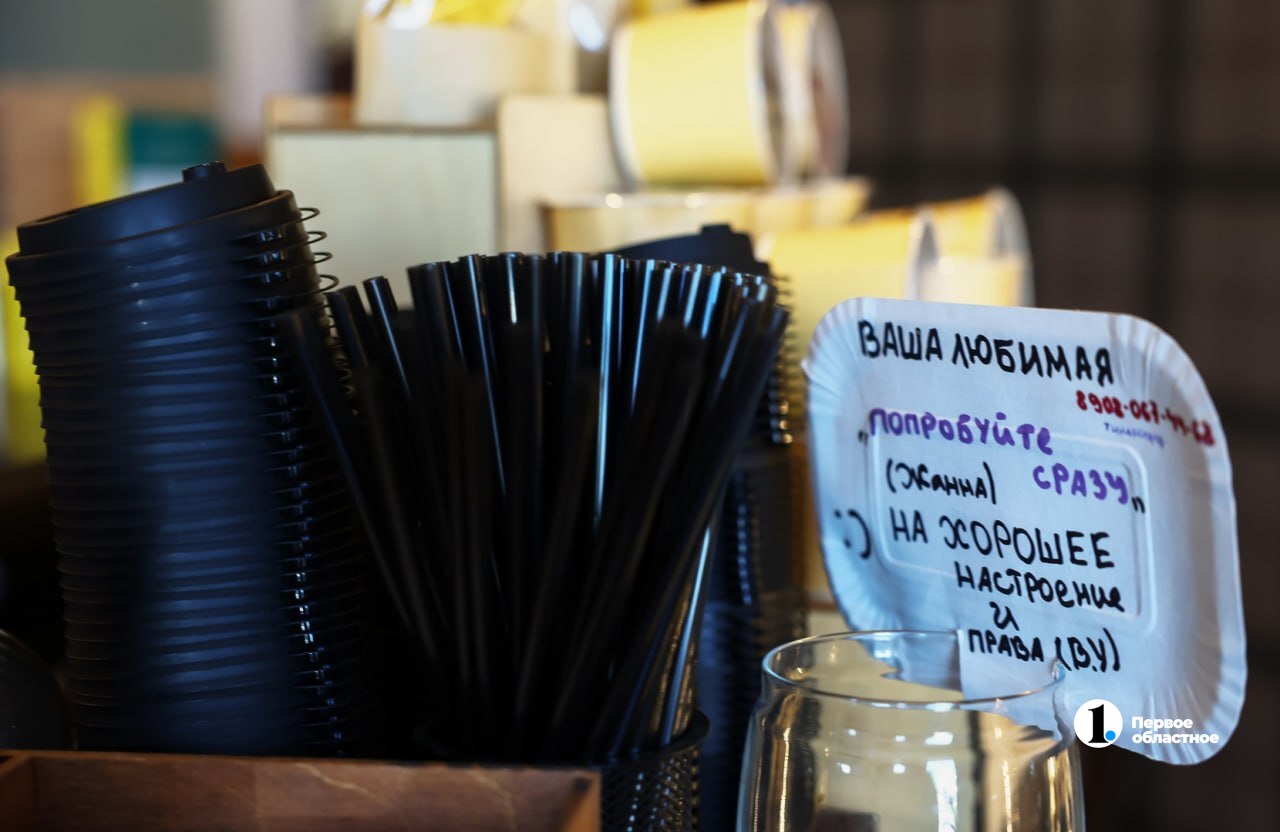 ВАША ЛЮБИМАЯ
8908-067-44-68
"ПОПРОБУЙТЕ
СРАЗУ"
(Жанна)
:)
НА ХОРОШЕЕ
НАСТРОЕНИЕ
И
ПРАВА (В.У)
1.
Первое
областное